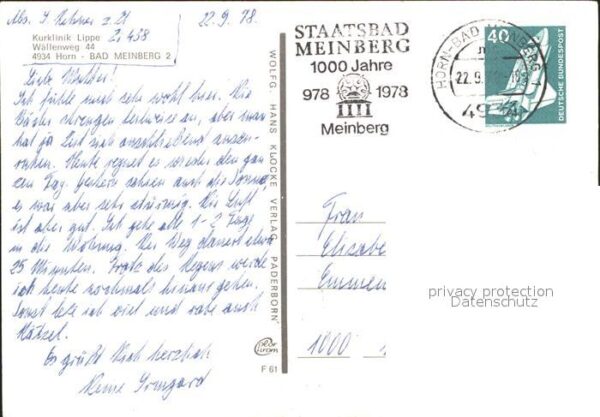 Abs. I. Rehner z. Zt
22.9.78.
Kurklinik Lippe Zi 458
Wällenweg 44
4934 Horn - BAD MEINBERG 2
Liebe Mutter!
Ich fühle mich sehr wohl hier. Die
Bäder strengen teilweise an, aber man
hat ja Zeit sich anschließend auszu-
ruhen. Heute regnet es wieder den gan
zen Tag. Gestern schien auch die Sonne,
es war aber sehr stürmig. Die Luft
ist aber gut. Ich gehe alle 1-2 Tage
in die Wohnung. Der Weg dauert etwa
25 Minuten. Trotz des Regens werde
ich heute nochmals hinausgehen.
Sonst lese ich viel und rate auch
Rätsel.
Es grüßt Dich herzlich
Deine Irmgard
WOLFG. HANS KLOCKE VERLAG PADERBORN
F 61
STAATSBAD
MEINBERG
1000 Jahre
978 1978
Meinberg
HORN-BAD MEINBERG
22.9.
49
40
DEUTSCHE BUNDESPOST
Frau
Elisabe
Emmen
1000
privacy protection
Datenschutz